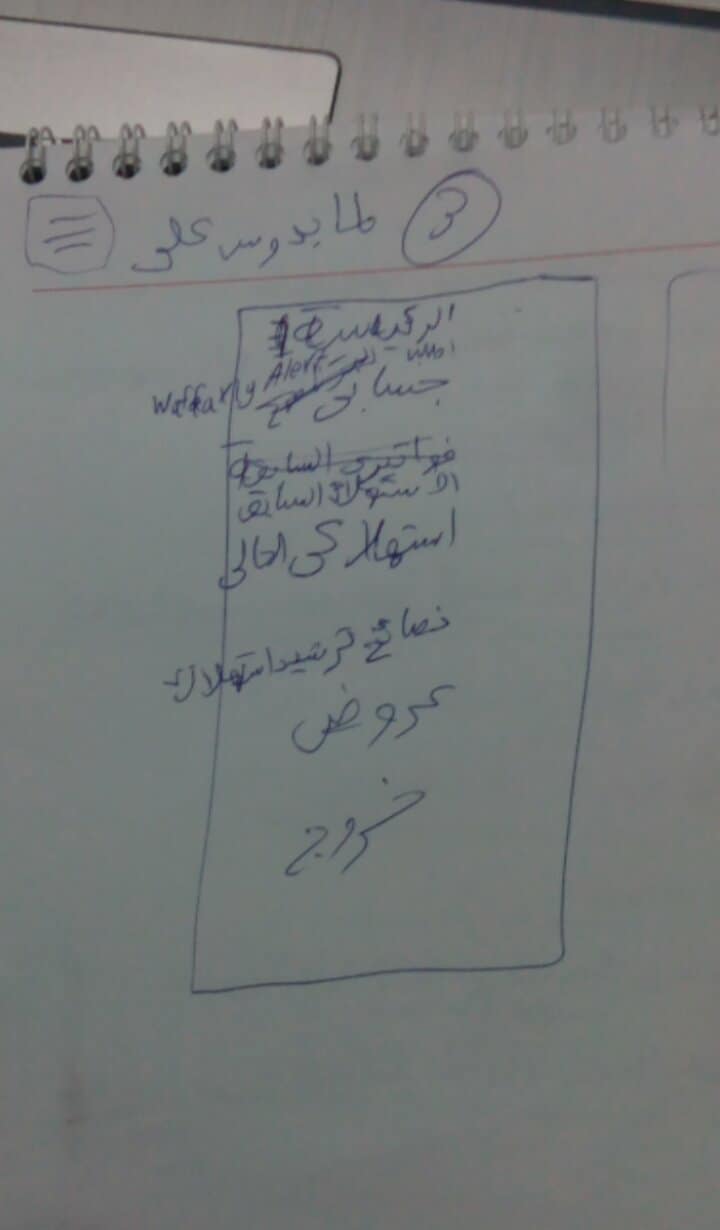 3 لما بدوس على
الرئيسية
اطلب Waffarly Alert
حسابى
فواتيرى السابقة
الاستهلاك السابق
استهلاكى الحالى
نصائح ترشيد استهلاك
عروض
خروج